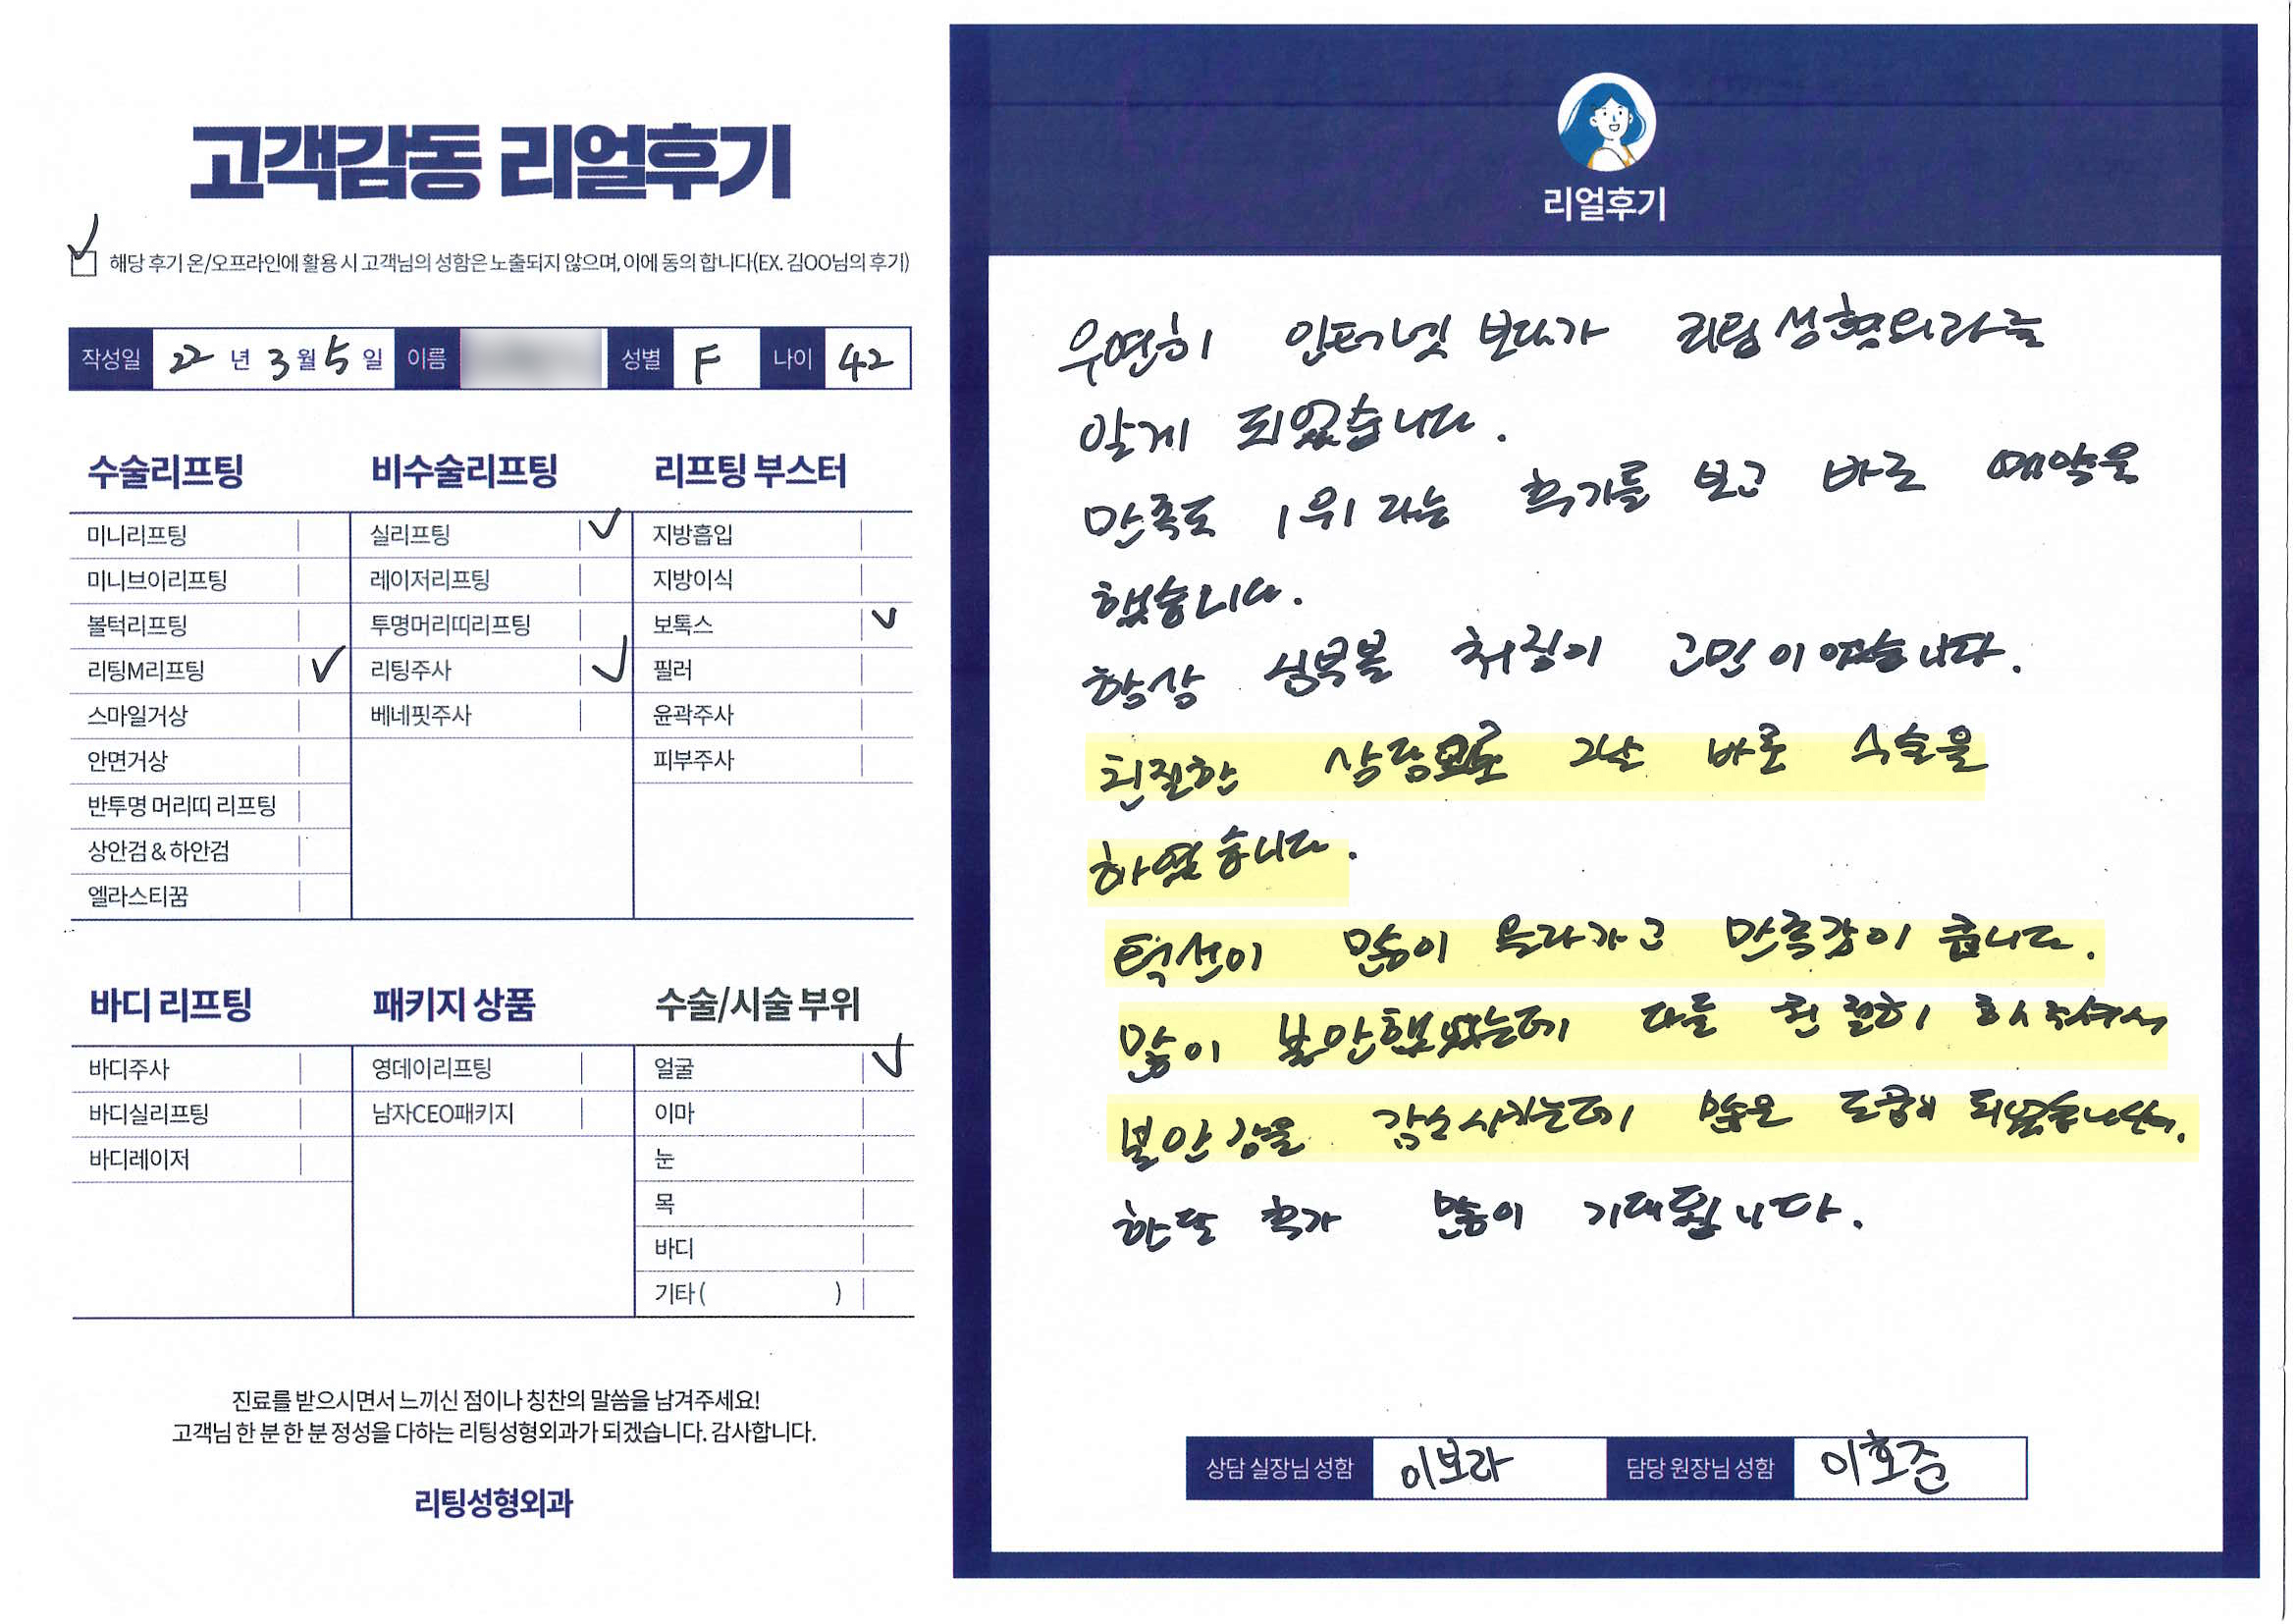 고객감동 리얼후기
해당 후기 온/오프라인에 활용 시 고객님의 성함은 노출되지 않으며, 이에 동의 합니다(EX. 김OO님의 후기)
작성일 22 년 3 월 5 일 이름 성별 F 나이 42
수술리프팅
미니리프팅
미니브이리프팅
볼턱리프팅
리팅M리프팅
스마일거상
안면거상
반투명 머리띠 리프팅
상안검 & 하안검
엘라스티꿈
비수술리프팅
실리프팅
레이저리프팅
투명머리띠리프팅
리팅주사
베네핏주사
리프팅 부스터
지방흡입
지방이식
보톡스
필러
윤곽주사
피부주사
바디 리프팅
바디주사
바디실리프팅
바디레이저
패키지 상품
영데이리프팅
남자CEO패키지
수술/시술 부위
얼굴
이마
눈
목
바디
기타 ( )
진료를 받으시면서 느끼신 점이나 칭찬의 말씀을 남겨주세요!
고객님 한 분 한 분 정성을 다하는 리팅성형외과가 되겠습니다. 감사합니다.
리팅성형외과
리얼후기
우연히 인터넷 보다가 리팅성형외과를
알게 되었습니다.
만족도 1위라는 후기를 보고 바로 예약을
했습니다.
항상 심부볼 처짐이 고민이었습니다.
친절한 상담으로 그날 바로 수술을
하였습니다.
턱선이 많이 올라가고 만족감이 큽니다.
많이 불안했었는데 다들 친절히 해주셔서
불안감을 감소시키는데 많은 도움이 되었습니다.
한달 후가 많이 기대됩니다.
상담 실장님 성함 이보라 담당 원장님 성함 이호준